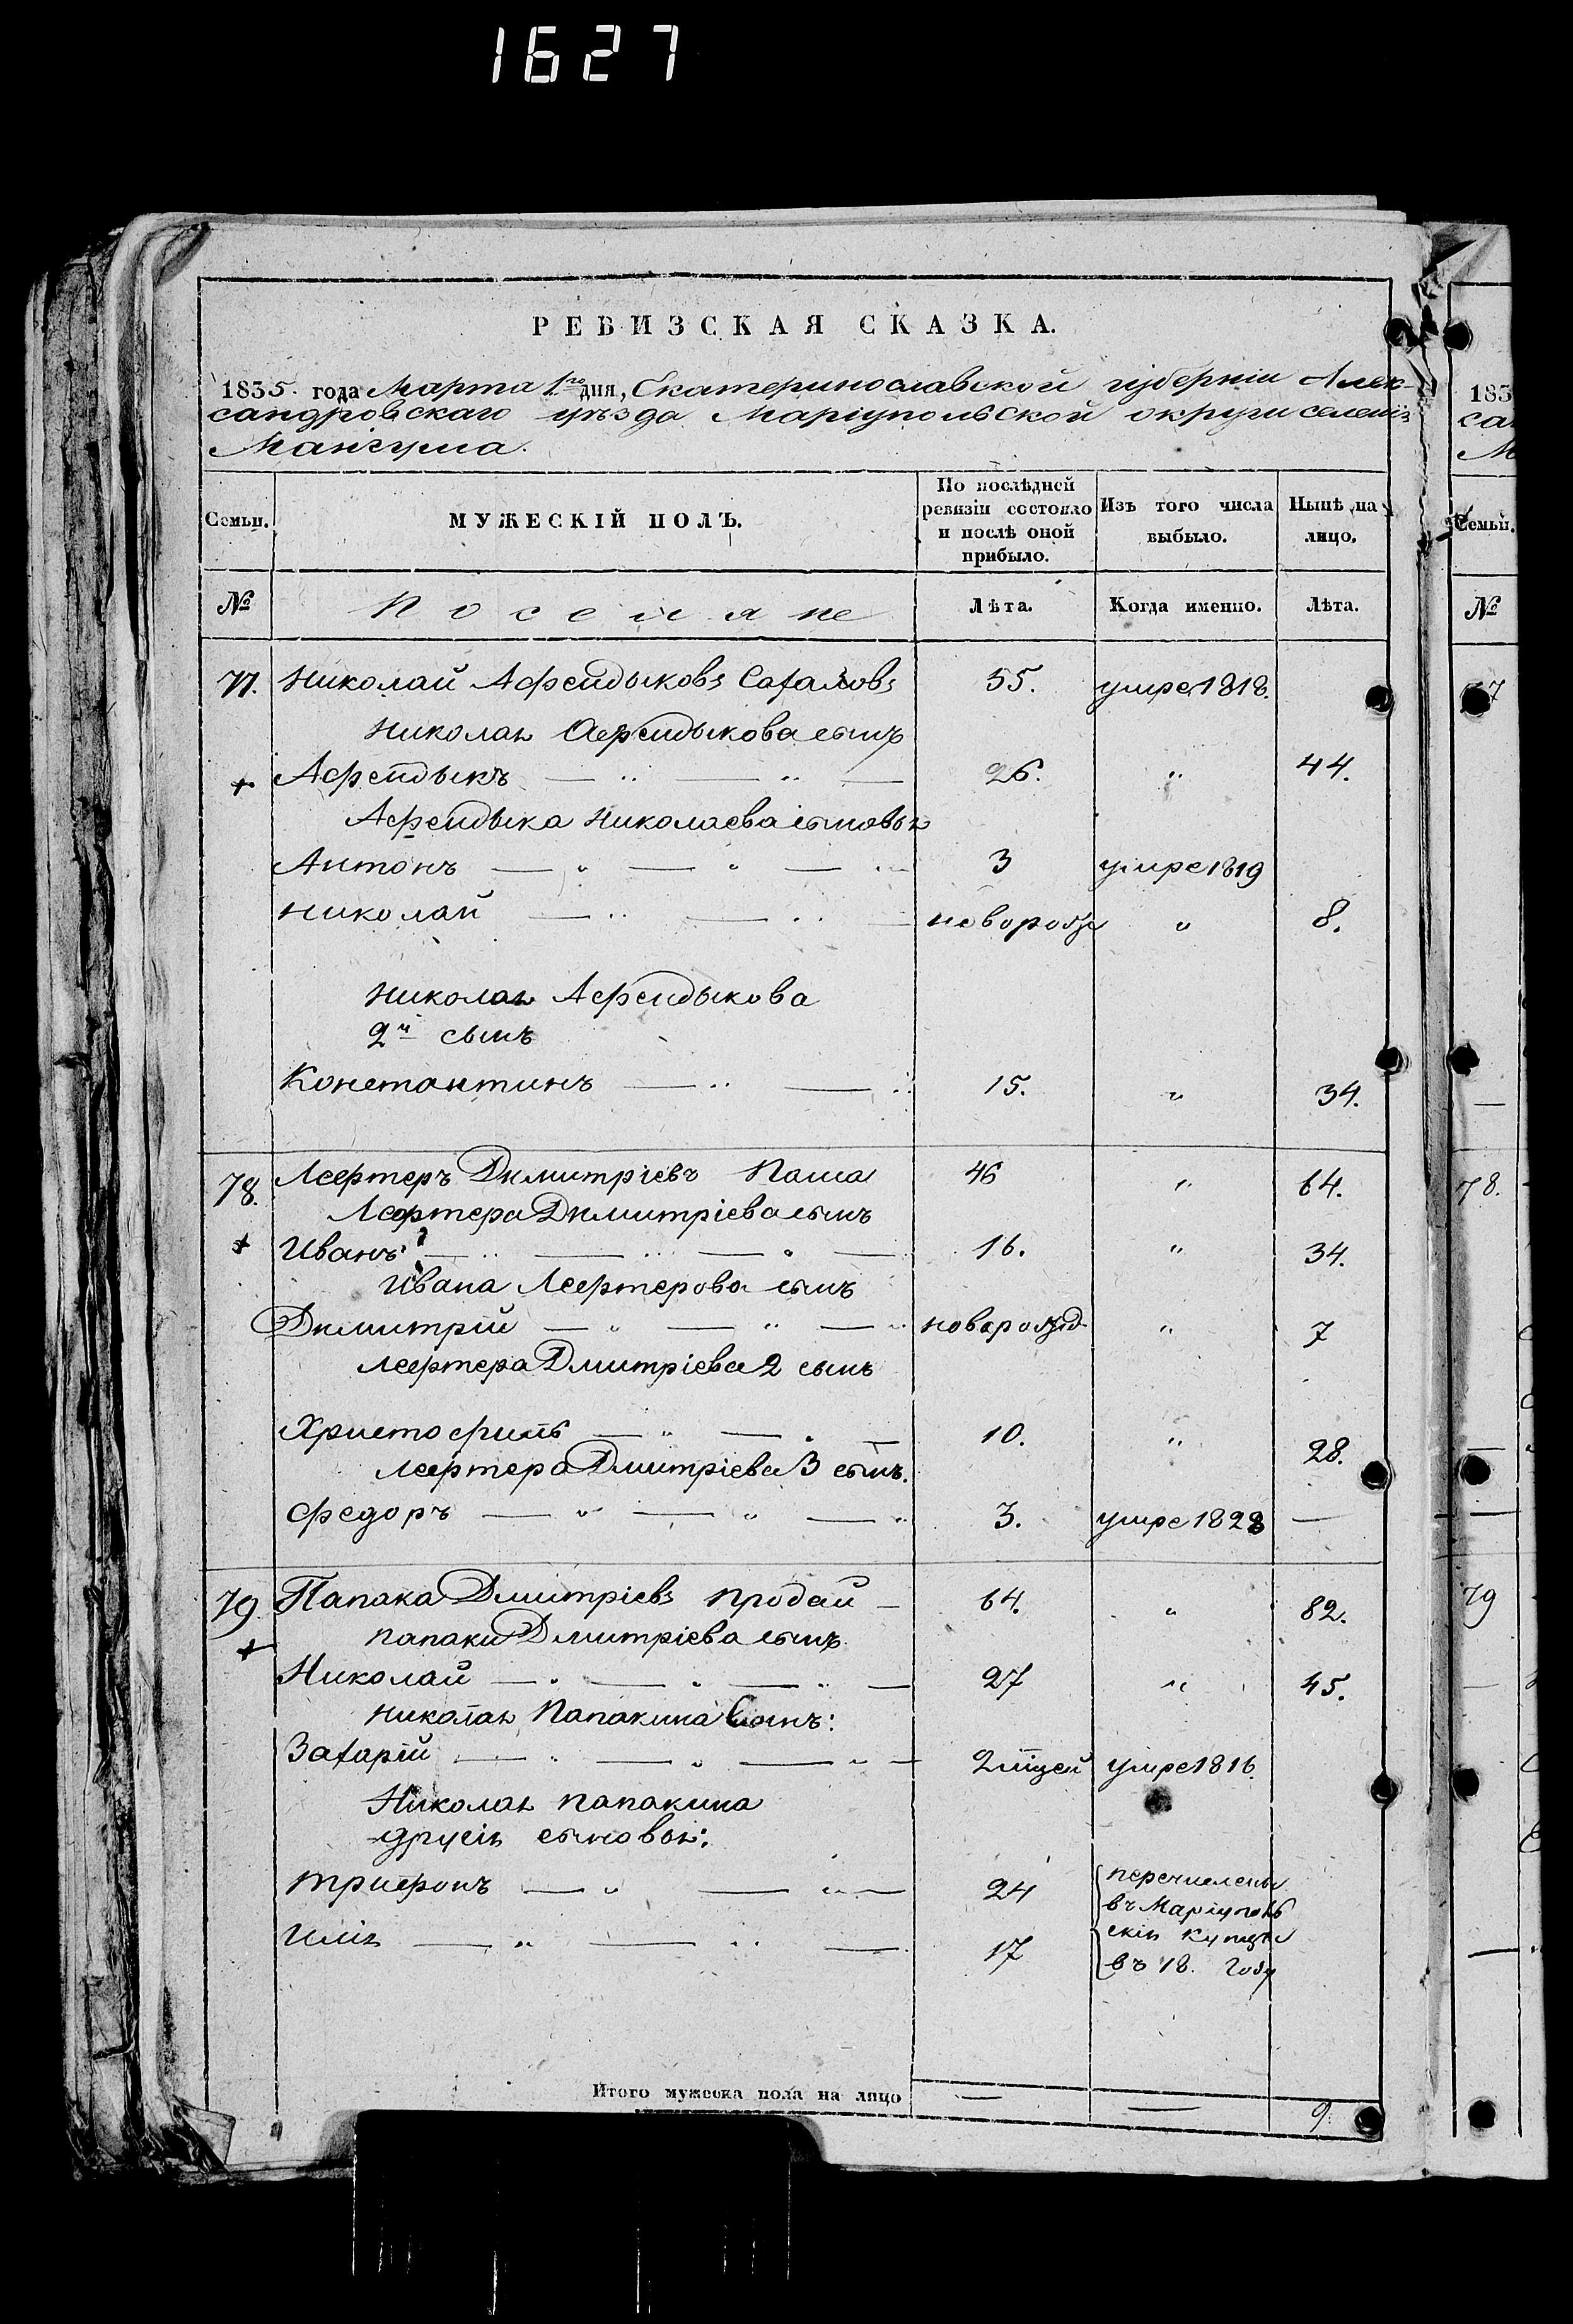 1627
РЕВИЗСКАЯ СКАЗКА.
1835. года Марта 1го дня, Екатеринославской губерніи Алек-
сандровскаго уѣзда Маріупольской округи селенія
Мангуша.
Семьи. МУЖЕСКІЙ ПОЛЪ. По послѣдней ревизіи состояло и послѣ оной прибыло. Изъ того числа выбыло. Нынѣ на лицо.
№ Поселяне Лѣта. Когда именно. Лѣта.
77. Николай Афендыковъ 55. умре 1818.
Николая Афендыкова сынъ
Афендыкъ — " — " — 26. " 44.
Афендыка Николаева сыновья
Антонъ — " — " — " 3 умре 1819
Николай — " — " — новорож " 8.
Николая Афендыкова
2й сынъ
Константинъ — " — " 15. " 34.
78. Лефтеръ Дмитріевъ Паша 46 " 64.
Лефтера Дмитріева сынъ
Иванъ — " — " — " — 16. " 34.
Ивана Лефтерова сынъ
Дмитрій — " — " — " новорожд " 7
Лефтера Дмитріева 2 сынъ
Христофилъ — " — " — 10. " 28.
Лефтера Дмитріева 3 сынъ.
Федоръ — " — " — " 3. умре 1828 —
79. Папака Дмитріевъ Продай — 64. " 82.
Папаки Дмитріева сынъ
Николай — " — " — " — 27 " 45.
Николая Папакина Сынъ:
Захарій — " — " — " — 2 мцей умре 1816.
Николая Папакина
другія сыновья:
Трифонъ — " — " — 24 перечислены
въ Маріуполь
Илія — " — " — 17 скія купцы
въ 18. году
Итого мужеска пола на лицо — — 9.
183
са
М
Семьи.
№
77
78.
79